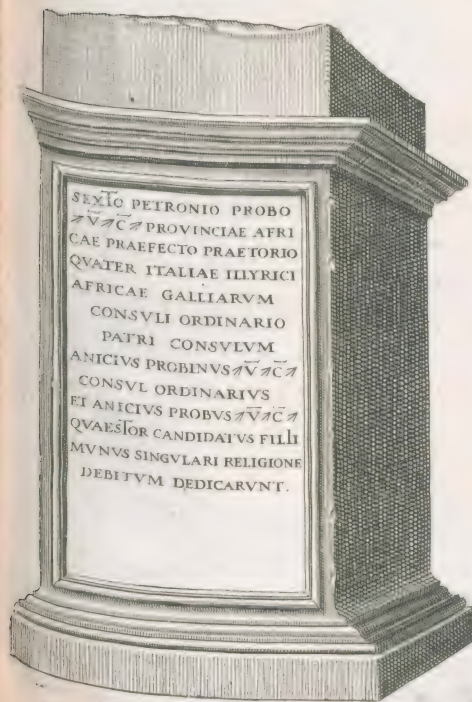 SEXTO PETRONIO PROBO
V C PROVINCIAE AFRI
CAE PRAEFECTO PRAETORIO
QVATER ITALIAE ILLYRICI
AFRICAE GALLIARVM
CONSVLI ORDINARIO
PATRI CONSVLVM
ANICIVS PROBINVS V C
CONSVL ORDINARIVS
ET ANICIVS PROBVS V C
QVAESTOR CANDIDATVS FILII
MVNVS SINGVLARI RELIGIONE
DEBITVM DEDICARVNT.